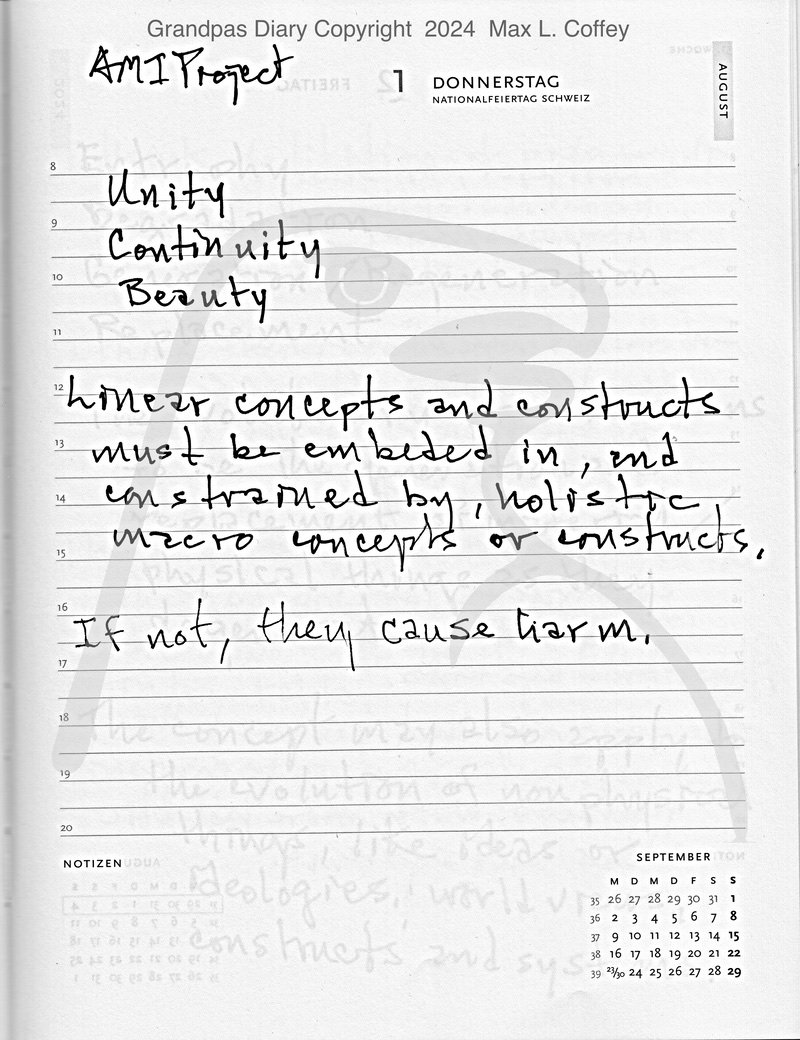 Grandpas Diary Copyright 2024 Max L. Coffey
AMI Project
1 DONNERSTAG
NATIONALFEIERTAG SCHWEIZ
AUGUST
8
Unity
9
Continuity
10
Beauty
11
12
Linear concepts and constructs
13
must be embeded in, and
14
constrained by, holistic,
macro concepts or constructs.
15
16
If not, they cause harm.
17
18
The concept may also apply to
the evolution of non physical
19
things, like ideas or
20
ideologies, world views,
constructs and systems
NOTIZEN
SEPTEMBER
M D M D F S S
35 26 27 28 29 30 31 1
36 2 3 4 5 6 7 8
37 9 10 11 12 13 14 15
38 16 17 18 19 20 21 22
39 23/30 24 25 26 27 28 29